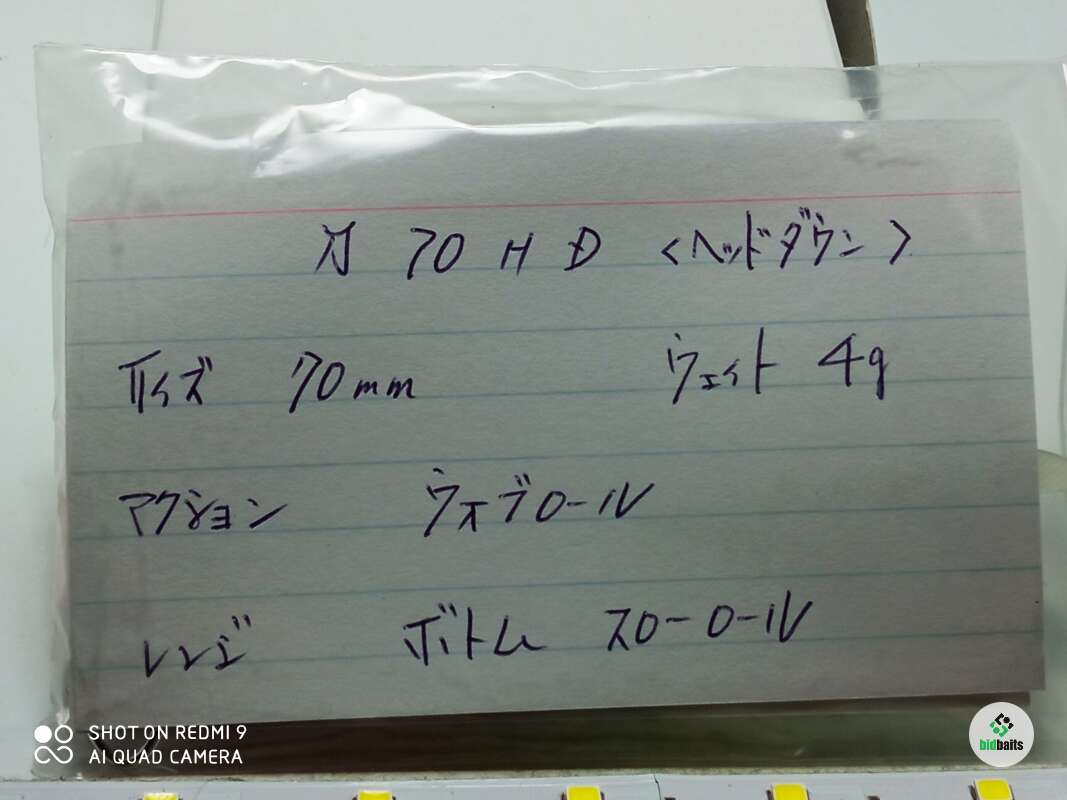 70 H D 〈ヘッドダウン〉
サイズ 70mm ウェイト 4g
アクション ウォブロール
レンジ ボトム スローロール
SHOT ON REDMI 9
AI QUAD CAMERA
bidbaits